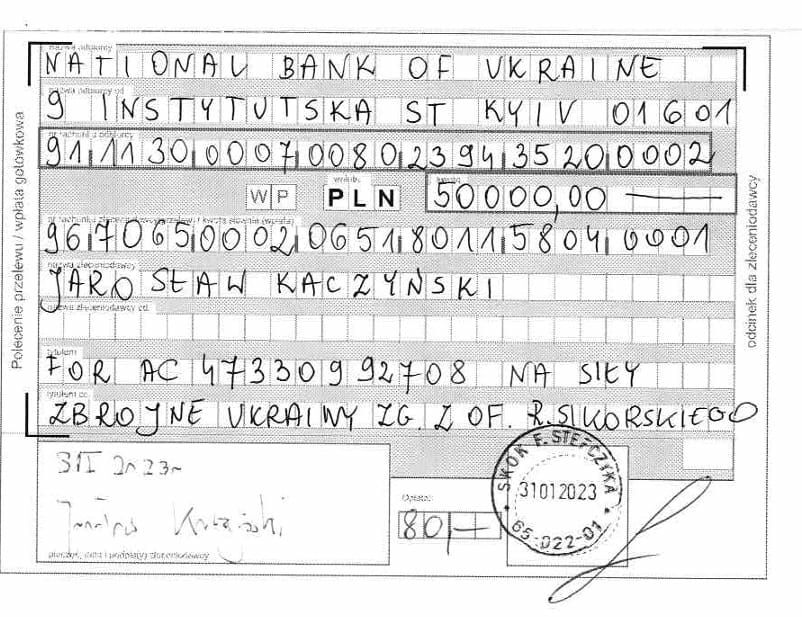 nazwa odbiorcy
NATIONAL BANK OF UKRAINE
nazwa odbiorcy cd.
9 INSTYTUTSKA ST KYIV 01601
nr rachunku odbiorcy
91 1130 0007 0080 2394 3520 0002
WP
waluta
PLN
kwota
50000,00
96 7065 0002 0651 8011 5804 0001
nazwa zleceniodawcy
JAROSŁAW KACZYŃSKI
nazwa zleceniodawcy cd.
tytułem
FOR AC 47330992708 NA SIŁY
tytułem cd.
ZBROJNE UKRAINY ZG. Z OF. R. SIKORSKIEGO
31 I 2023r
Opłata:
80,-
SKOK F. STEFCZYKA
31012023
65-022-01
pieczęć, data i podpis(y) zleceniodawcy
Polecenie przelewu / wpłata gotówkowa
odcinek dla zleceniodawcy